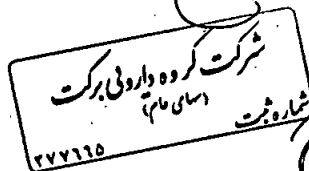 شرکت گروه دارویی برکت
(سهامی عام)
شماره ثبت
۲۷۷۶۶۵